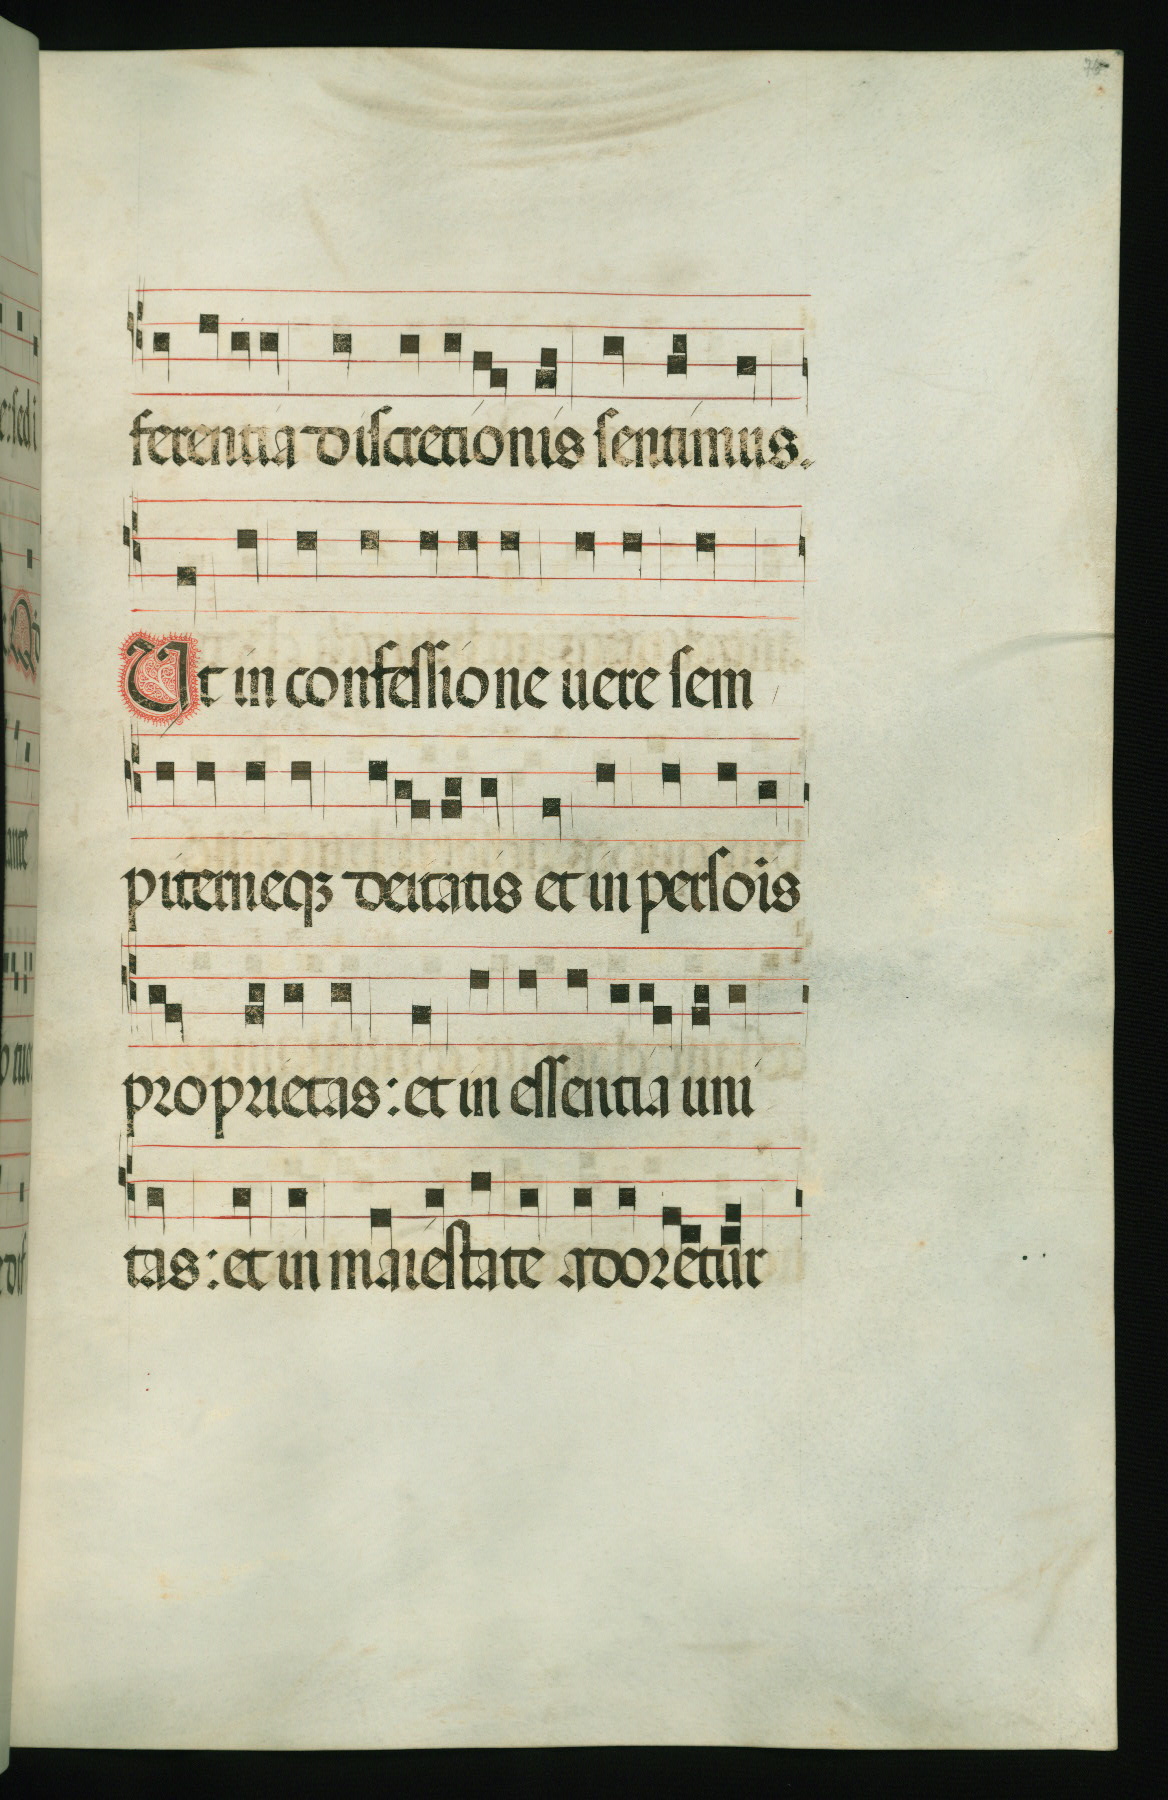 ferentia discretionis sentimus.
Ut in confessione uere sem
piterneqꝫ deitatis et in persois
proprietas: et in essentia uni
tas: et in maiestate adoretur